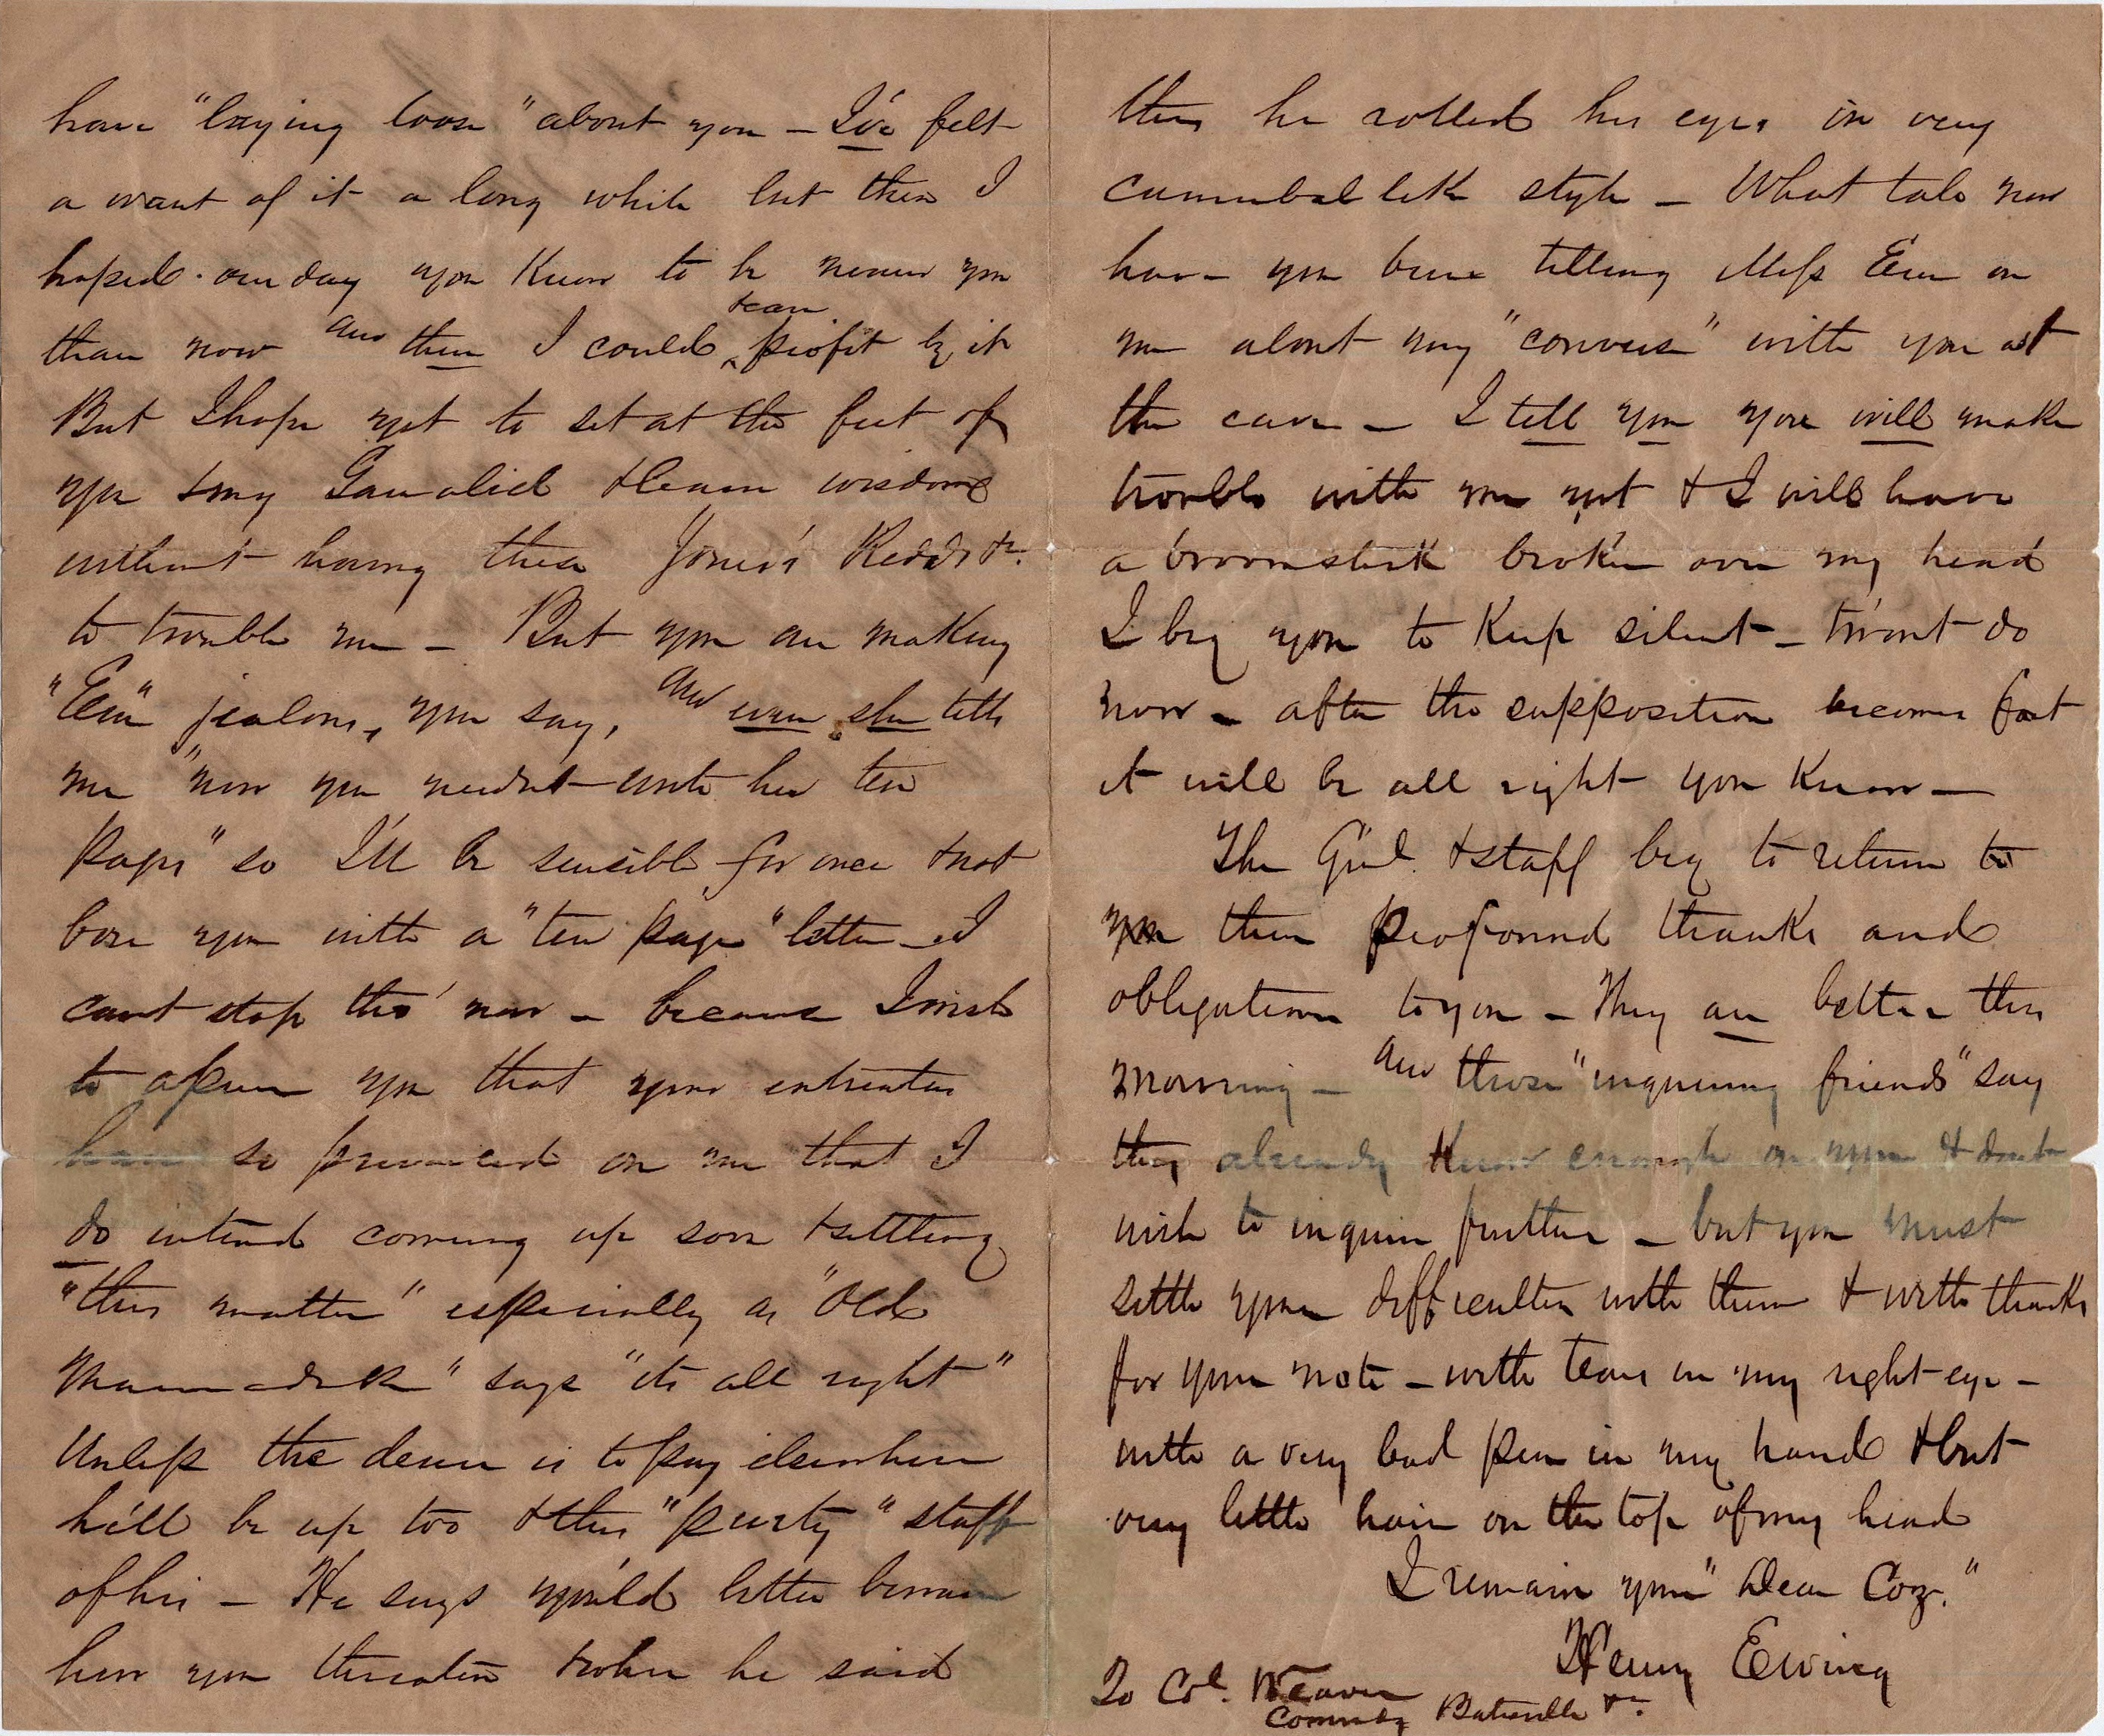 have "laying loose" about you – I've felt
a want of it a long while but then I
hoped one day you know to be nearer you
than now and then I could
learn
profit by it
But I hope yet to set at the feet of
you my Gamaliel & learn wisdom
without having these Jones's Redds &c.
to trouble me – But you are making
"Em" jealous, you say, and even she tells
me "now you needn't write her ten
pages" so I'll be sensible for once & not
bore you with a "ten page" letter – I
cant stop tho' now – because I wish
to assure you that your entreaties
have so prevailed on me that I
do intend coming up soon & settling
"this matter" especially as "Old
Marmaduke" says "its all right"
Unless the deuce is to pay elsewhere
he'll be up too & this "purty" staff
of his – He says you'd better beware
how you threaten & when he said
this he rolled his eyes in very
cannibal like style – What tale now
have you been telling Miss Em on
me about my "converse" with you at
the cave – I tell you you will make
trouble with me yet & I will have
a broomstick broken over my head
I beg you to keep silent – twont do
now – after the supposition becomes fact
it will be all right you know –
The Genl. & staff beg to return to
you their profound thanks and
obligations to you – They are better this
morning – and those "inquiring friends" say
they already know enough on you & dont
wish to inquire further – but you must
settle your difficulties with them & with thanks
for your note – with tears in my right eye –
with a very bad pen in my hand & but
very little hair on the top of my head
I remain your "Dear Coz."
Henry Ewing
To Col. Weaver
Commdg Batesville &c.